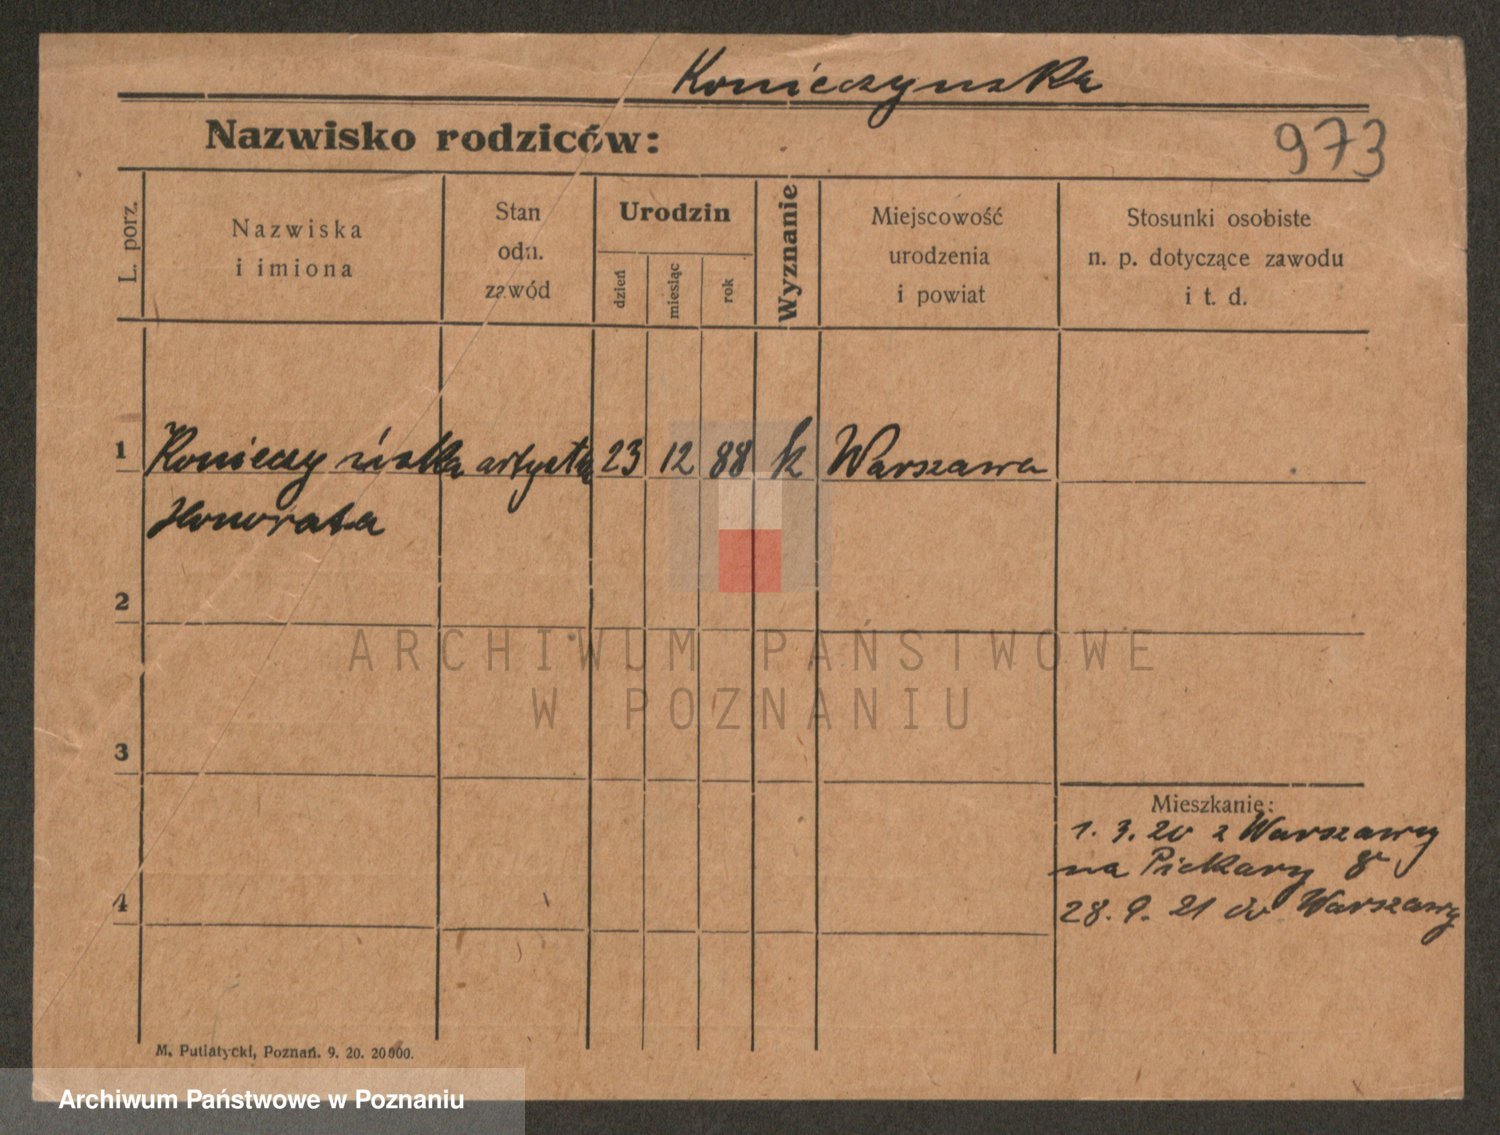 Konieczynska
Nazwisko rodziców:
973
L. porz.
Nazwiska
i imiona
Stan
odn.
zawód
Urodzin
dzień
miesiąc
rok
Wyznanie
Miejscowość
urodzenia
i powiat
Stosunki osobiste
n. p. dotyczące zawodu
i t. d.
1 artysta 23 12 88 k Warszawa
Honorata
2
ARCHIWUM PAŃSTWOWE
W POZNANIU
3
Mieszkanie:
1. 3. 20 z Warszawy
na Piekary 8
4
28. 9. 21 do Warszawy
M. Putiatycki, Poznań. 9. 20. 20000.
Archiwum Państwowe w Poznaniu